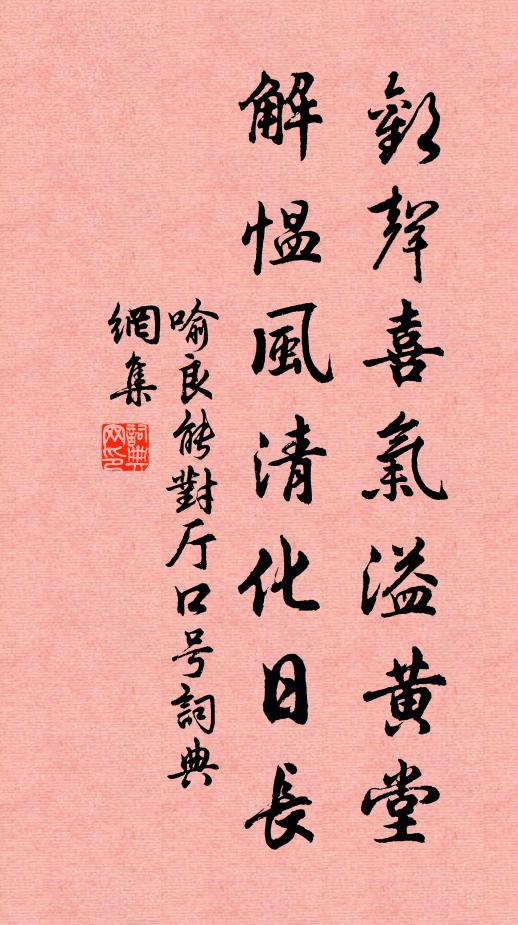 歡聲喜氣溢黄堂
解愠風清化日長
喻良能對厅口号詞典
網集
詞典網印